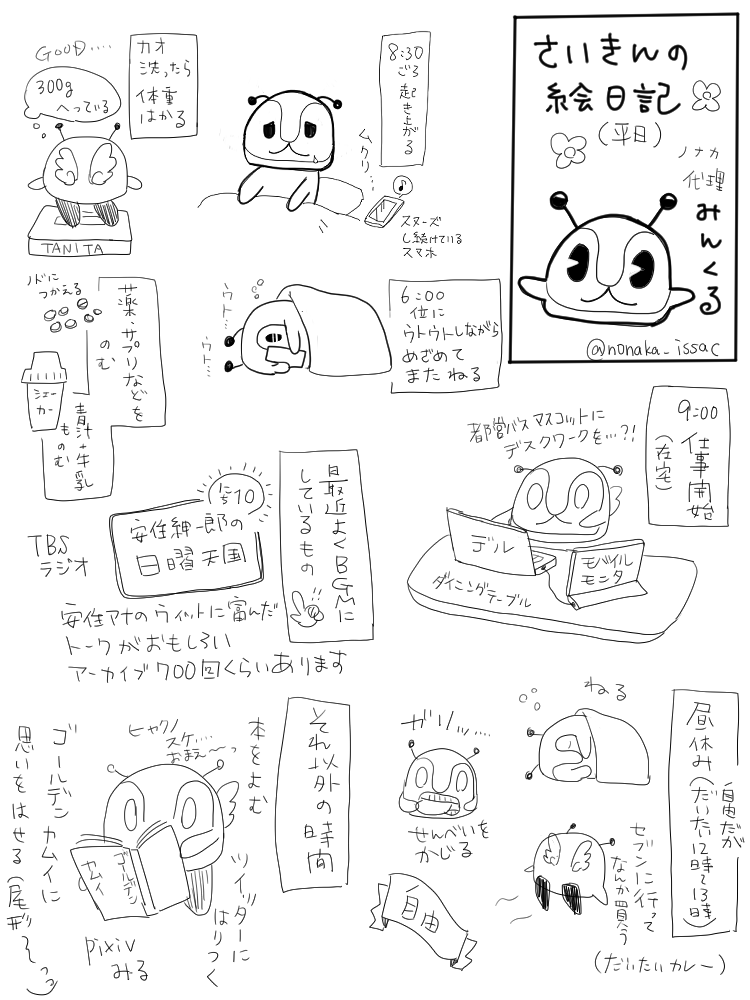 さいきんの
絵日記
(平日)
ノナカ
代理
みんくる
@nonaka_issac
6:00
位に
ウトウトしながら
めざめて
またねる
ウト…
ウト…
8:30
ごろ
起き上がる
ムクリ…
♪
スヌーズ
し続けている
スマホ
カオ
洗ったら
体重
はかる
GOOD....
300g
へっている
TANITA
薬・サプリなどを
のむ
ノドに
つかえる
青汁+牛乳
ものむ
シェー
カー
9:00
仕事開始
(在宅)
都営バスマスコットに
デスクワークを…?!
デル
モバイル
モニタ
ダイニングテーブル
最近よくBGMに
しているもの
にち10
安住紳一郎の
日曜天国
TBS
ラジオ
安住アナのウィットに富んだ
トークがおもしろい
アーカイブ700回くらいあります
昼休み(だいたい12時〜13時)
自由だが
ねる
セブンに行って
なんか買う
(だいたいカレー)
ガリッ…
せんべいを
かじる
自由
それ以外の時間
本をよむ
ヒャクノ
スケ….
おまえ〜っ
ゴールデン
カムイ
ツイッターに
はりつく
pixiv
みる
ゴールデンカムイに
思いをはせる(尾形〜っ)